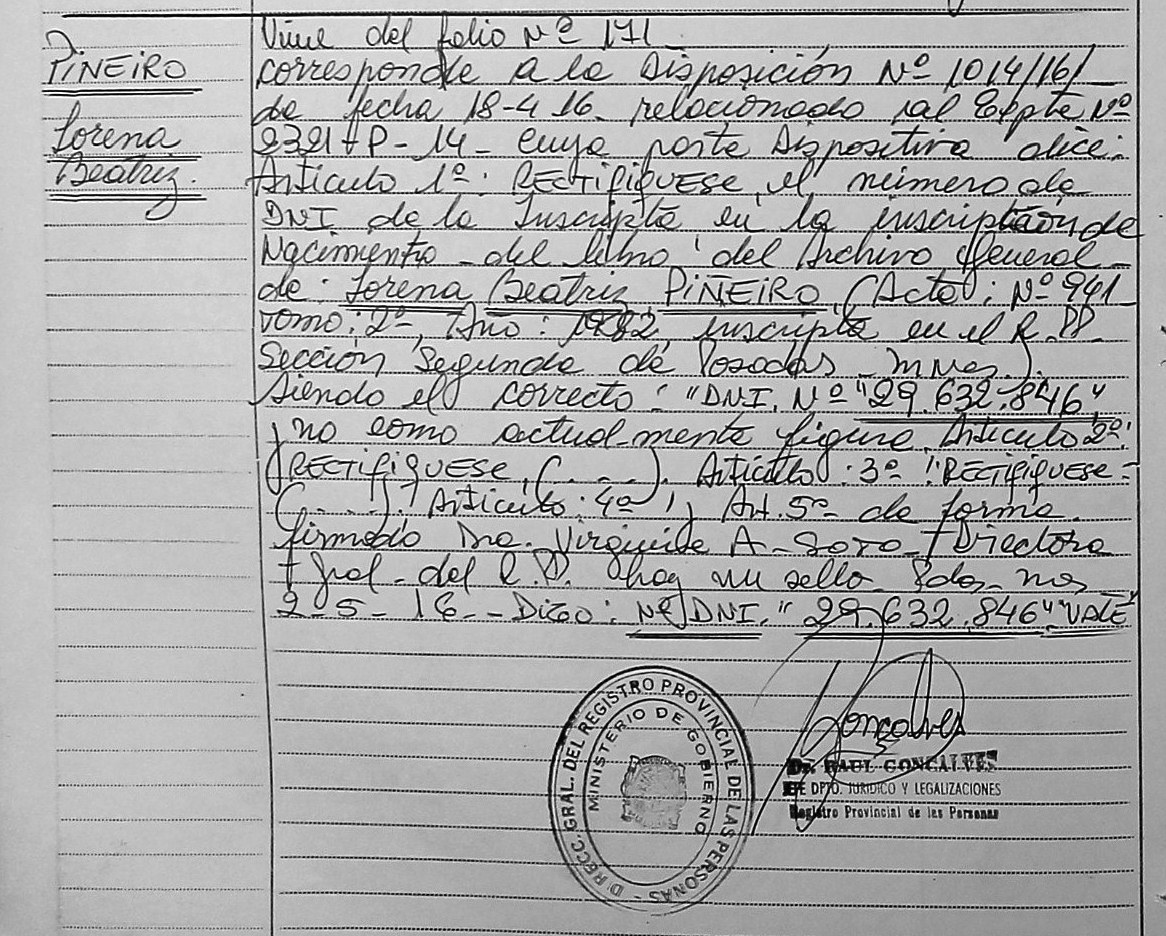 PIÑEIRO
Lorena
Beatriz.
Viene del folio Nº 171
corresponde a la Disposición Nº 1014/16/
de fecha 18-4-16- relacionado al Expte Nº
P-14- cuya parte Dispositiva dice:
Artículo 1º: RECTIFIQUESE, el número de
DNI de la Inscripta en la inscripción de
Nacimiento - del libro del Archivo General
de: Lorena Beatriz PIÑEIRO, (Acta: Nº 941
Tomo: 2º, Año: 1982, inscripta en el R.PP.
Sección Segunda de Posadas - Mnes.).
Siendo el correcto: "DNI. Nº "29.632.846"
y no como actualmente figura. Artículo 2º:
RECTIFIQUESE, (....). Artículo: 3º: RECTIFIQUESE-
(....). Artículo: 4º, Art. 5º- de forma.
firmado Dra. A- Directora
Gral- del R.P. hay un sello- Pdas- Mnes
2-5-16-- Digo: Nº DNI. "29.632.846" "VALE"
DIRECC. GRAL. DEL REGISTRO PROVINCIAL DE LAS PERSONAS -
MINISTERIO DE GOBIERNO
Goncalves
Dr. RAUL GONCALVES
JEFE DPTO. JURIDICO Y LEGALIZACIONES
Registro Provincial de las Personas